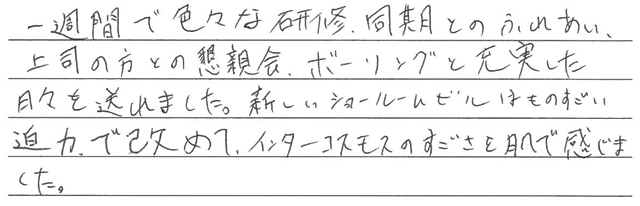 一週間で色々な研修、同期とのふれあい、
上司の方との懇親会、ボーリングと充実した
日々を送れました。新しいショールームビルはものすごい
迫力で改めて、インターコスモスのすごさを肌で感じま
した。